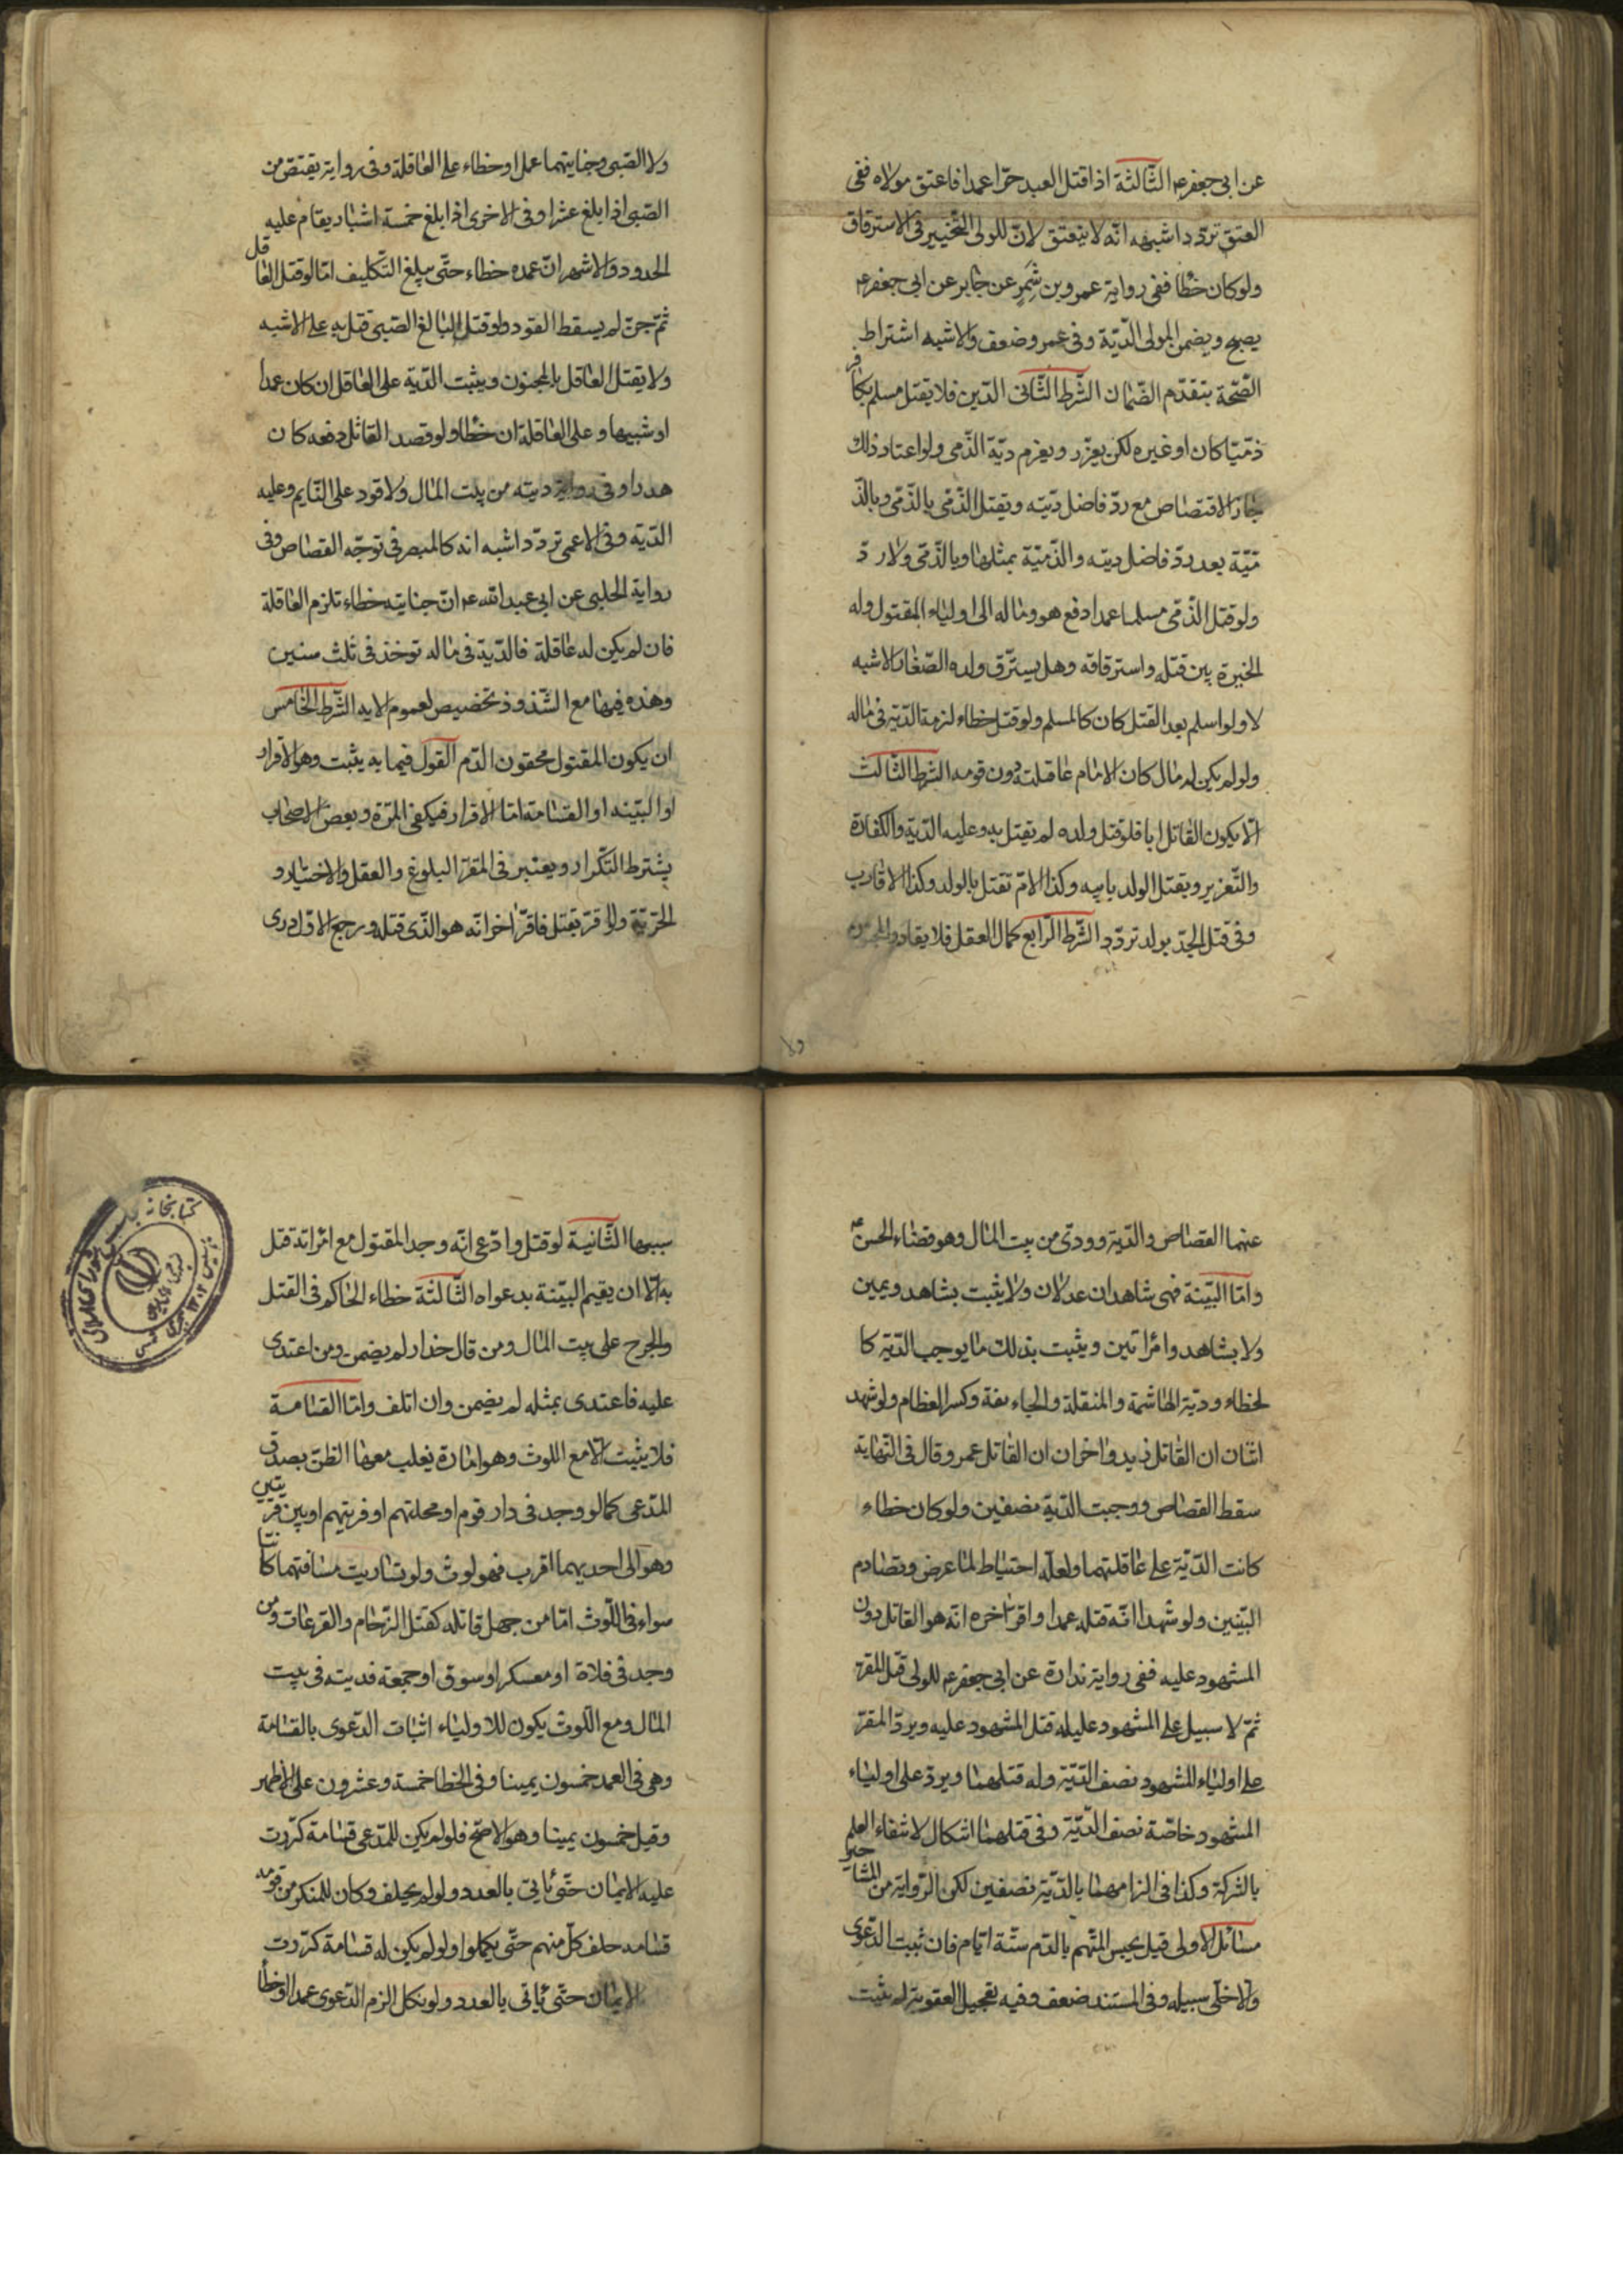 عن ابی جعفر ع الثّالثة اذا قتل العبد حرّا عمدا فاعتق مولاه ففی
العتق تردّد اشبهه انّه لا ینعتق لانّ للولی التّخییر فی الاسترقاق
ولو کان خطًا ففی روایة عمرو بن شَمِرٍ عن جابر عن ابی جعفر ع
یصحّ ویضمن المولی الدّیّة وفی عمرو ضعف والاشبه اشتراط
الصّحّة بتقدّم الضّمان الشّرط الثّانی الدّین فلا یقتل مسلم بکافر
ذمّیّا کان او غیره لکن یعزّر ویغرم دیّة الذّمی ولو اعتاد ذلك
جاز الاقتصاص مع ردّ فاضل دیّته ویقتل الذّمّی بالذّمّی وبالذّ
مّیّة بعد ردّ فاضل دیته والذّمّیّة بمثلها وبالذّمّی ولا ردّ
ولو قتل الذّمّی مسلما عمدا دفع هو وماله الی اولیاء المقتول وله
الخیرة بین قتله واسترقاقه وهل یسترّق ولده الصّغار الاشبه
لا ولو اسلم بعد القتل کان کالمسلم ولو قتل خطاء لزمة الدّیّة فی ماله
ولو لم یکن له مال کان الامام عاقلته دون قومه الشّرط الثّالث
الّا یکون القاتل ابا فلو قتل ولده لم یقتل به وعلیه الدّیّة والکفّارة
والتّعزیر ویقتل الولد بابیه وکذا الامّ تقتل بالولد وکذا الاقارب
وفی قتل الجدّ بولد تردّد الشّرط الرّابع کمال العقل فلا یقاد المجنون
ولا
ولا الصّبی وجنایتهما عمدا وخطاء علی العاقلة وفی روایة یقتصّ من
الصّبی اذا بلغ عشرا وفی الاخری اذا بلغ خمسة اشبار یقام علیه
الحدود والاشهر انّ عمده خطاء حتّی یبلغ التّکلیف امّا لو قتل العاقل
ثمّ جنّ لم یسقط القود ولو قتل البالغ الصّبی قتل به علی الاشبه
ولا یقتل العاقل بالمجنون ویثبت الدّیة علی العاقل ان کان عمدا
او شبیها وعلی العاقلة ان خطًا ولو قصد القاتل دفعه کان
هدرا وفی روایة دیته من بیت المال ولا قود علی النّایم وعلیه
الدّیة وفی الاعمی تردّد اشبه انه کالمبصر فی توجّه القصاص وفی
روایة الحلبی عن ابی عبد الله ع انّ جنایته خطاء تلزم العاقلة
فان لم یکن له عاقلة فالدّیة فی ماله توخذ فی ثلث سنین
وهذه فیها مع الشّذوذ تخصیص لعموم الایه الشّرط الخامس
ان یکون المقتول محقون الدّم القول فیما به یثبت وهو الاقرار
او البیّنه او القسامة امّا الاقرار فیکفی المرّة وبعض الاصحاب
یشترط التّکرار ویعتبر فی المقرّ البلوغ والعقل والاختیار و
الحرّیّة ولو اقرّ بقتل فاقرّ اخر انّه هو الّذی قتله ورجع الاوّل دری
عنهما القصاص والدّیة وودی من بیت المال وهو قضاء الحسن ع
وامّا البیّنة فهی شاهدان عدلان ولا یثبت بشاهد ویمین
ولا بشاهد وامراتین ویثبت بذلك ما یوجب الدّیّة کا
لخطاء ودیّة الهاشمة والمنقلة والجاءیفة وکسر العظام ولو شهد
اثنان ان القاتل زید واخران ان القاتل عمرو قال فی النّهایة
سقط القصاص ووجبت الدّیة نصفین ولو کان خطاء
کانت الدّیّة علی عاقلتهما ولعلّه احتیاط لما عرض وتصادم
البیّنین ولو شهدا انّه قتله عمدا واقرّ اخره انّه هو القاتل دون
المشهود علیه ففی روایة زرارة عن ابی جعفر ع للولی قتل المقرّ
ثمّ لا سبیل علی المشهود علیه وله قتل المشهود علیه ویردّ المقرّ
علی اولیاء المشهود نصف الدّیّة وله قتلهما ویردّ علی اولیاء
المشهود خاصّة نصف الدّیّة وفی قتلهما اشکال لانتفاء العلم
بالشرکة وکذا فی الزامهما بالدّیّة نصفین لکن الرّوایة من المشاهیر
مسائل الاولی قیل یحبس المتّهم بالدّم ستّة ایّام فان ثبت الدّعوی
والّا خلّی سبیله وفی المستند ضعف وفیه تعجیل العقوبة لم یثبت
سببها الثّانیة لو قتل وادّعی انّه وجد المقتول مع امراته قتل
به الّا ان یقیم البیّنة بدعواه الثّالثة خطاء الحاکم فی القتل
والجرح علی بیت المال ومن قال حذار لم یضمن ومن اعتدی
علیه فاعتدی بمثله لم یضمن وان اتلف وامّا القسامة
فلا یثبت الّا مع اللوث وهو امارة یغلب معها الظنّ بصدق
المدّعی کما لو وجد فی دار قوم او محلتهم او قریتهم او بین قریتین
وهو الی احدیهما اقرب فهو لوث ولو تساویت مسافتهما کانتا
سواء فی اللّوث امّا من جهل قاتله کقتل الزّحام والفزعات ومن
وجد فی فلاة او معسکر او سوق او جمعة فدیته فی بیت
المال ومع اللّوث یکون للاولیاء اثبات الدّعوی بالقسامة
وهی فی العمد خمسون یمینا وفی الخطا خمسة وعشرون علی الاظهر
وقیل خمسون یمینا وهو الاصحّ فلو لم یکن للمدّعی قسامة کرّرت
علیه الایمان حتّی یأتی بالعدد ولو لم یحلف وکان للمنکر من قومه
قسامه حلف کلّ منهم حتّی یکملوا ولو لم یکن له قسامة کرّرت
الایمان حتّی یأتی بالعدد ولو نکل الزم الدّعوی عمدا او خطأ
کتابخانه مجلس شورای اسلامی